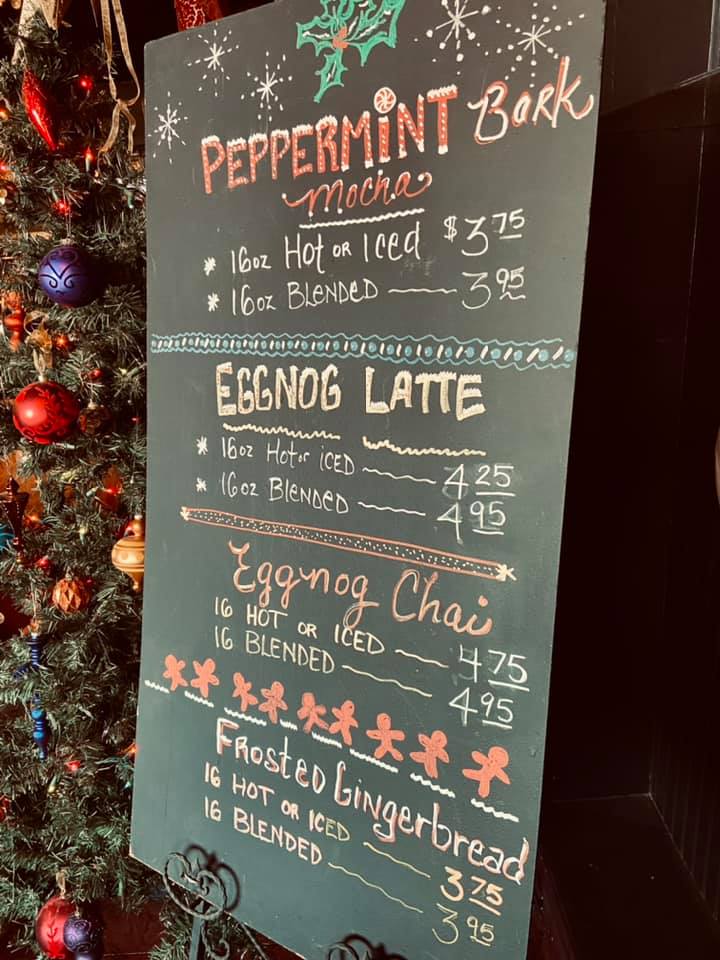 PEPPERMINT Bark
Mocha
* 16oz Hot or Iced $3.75
* 16oz Blended — 3.95
EGGNOG LATTE
* 16oz Hot or iced — 4.25
* 16oz Blended — 4.95
Eggnog Chai
16 HOT OR ICED — 4.75
16 BLENDED — 4.95
Frosted Gingerbread
16 HOT OR ICED — 3.75
16 BLENDED — 3.95